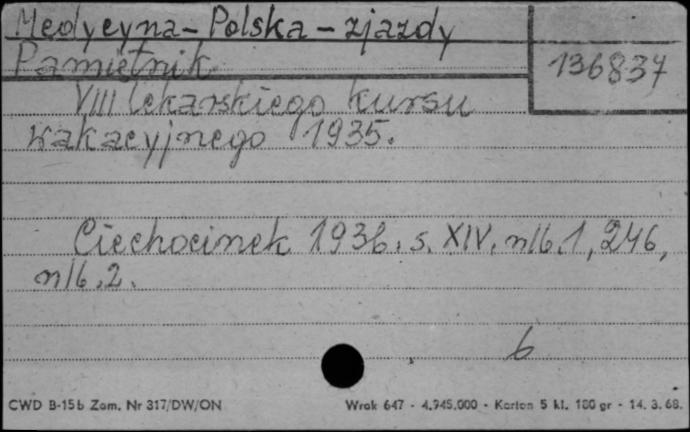 Medycyna - Polska - zjazdy
Pamiętnik
136837
VIII lekarskiego kursu
wakacyjnego 1935.
Ciechocinek 1936. s. XIV, nlb. 1, 246,
nlb. 2.
b
CWD B-15b Zam. Nr 317/DW/ON
Wrak 647 - 4.945.000 - Karton 5 kl. 180 gr - 14. 3. 68.